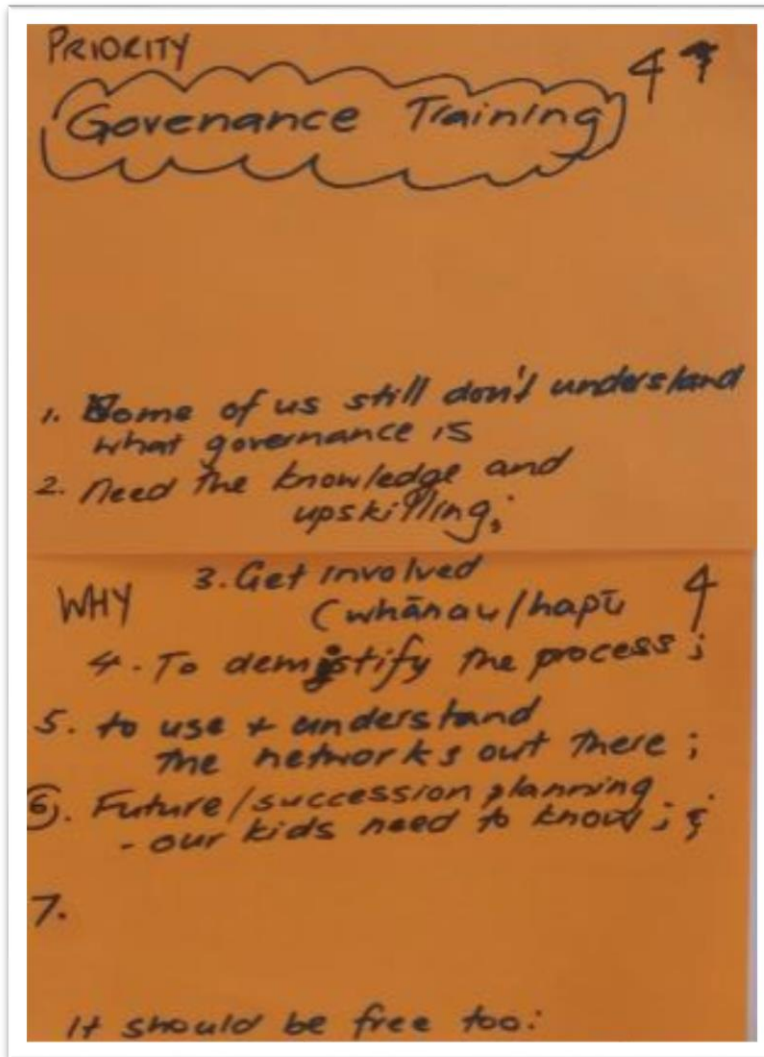 PRIORITY
4 4
Govenance Training
1. Some of us still don't understand
what governance is
2. Need the knowledge and
upskilling;
WHY
3. Get involved
(whānau/hapū
4
4. To demystify the process;
5. to use + understand
the networks out there;
6. Future/succession planning
- our kids need to know;
7.
It should be free too: